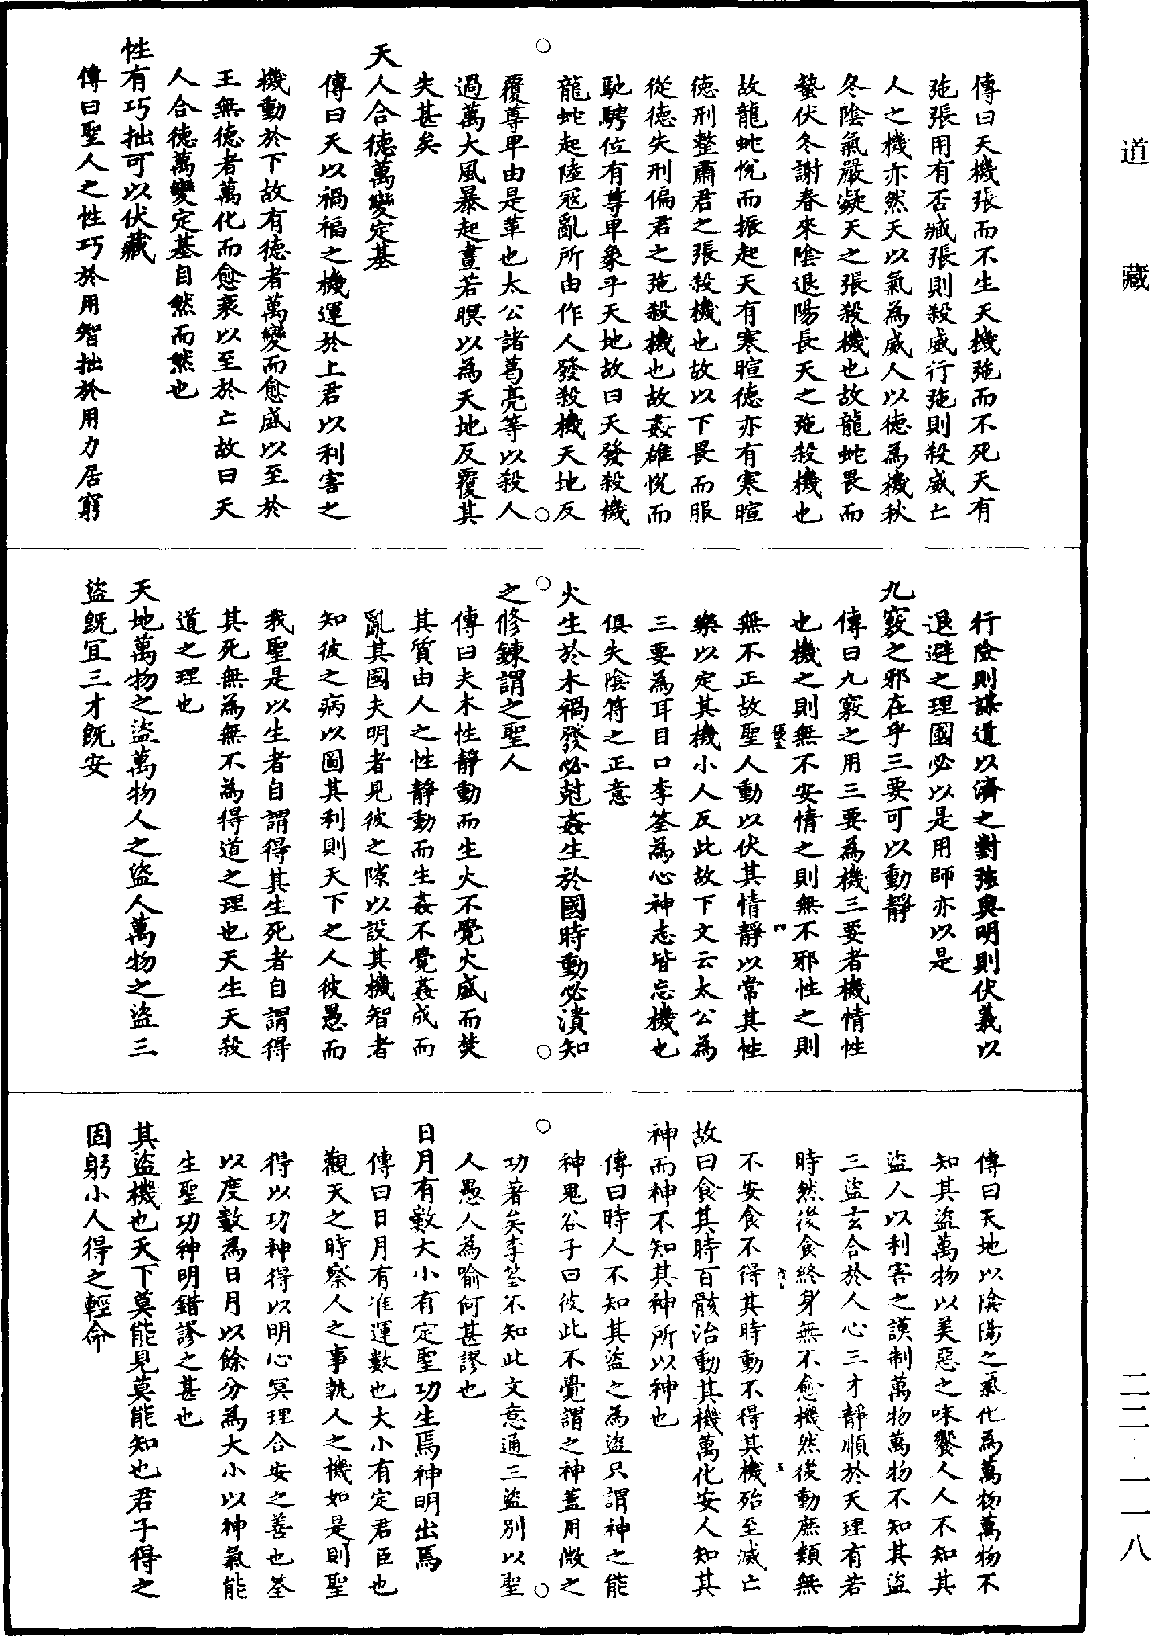 道藏
二二·一一八
傳曰天機張而不生天機弛而不死天有
弛張用有否臧張則殺威行弛則殺威亡
人之機亦然天以氣為威人以德為機秋
冬陰氣嚴凝天之張殺機也故龍蛇畏而
蟄伏冬謝春來陰退陽長天之弛殺機也
故龍蛇悅而振起天有寒暄德亦有寒暄
德刑整肅君之張殺機也故以下畏而服
從德失刑偏君之弛殺機也故姦雄悅而
馳騁位有尊卑象乎天地故曰天發殺機
龍蛇起陸寇亂所由作人發殺機天地反
覆尊卑由是革也太公諸葛亮等以殺人
過萬大風暴起晝若暝以為天地反覆其
失甚矣
天人合德萬變定基
傳曰天以禍福之機運於上君以利害之
機動於下故有德者萬變而愈盛以至於
王無德者萬化而愈衰以至於亡故曰天
人合德萬變定基自然而然也
性有巧拙可以伏藏
傳曰聖人之性巧於用智拙於用力居窮
行險則謀道以濟之對強與明則伏義以
退避之理國必以是用師亦以是
九竅之邪在乎三要可以動靜
傳曰九竅之用三要為機三要者機情性
也機之則無不安情之則無不邪性之則
無不正故聖人動以伏其情靜以常其性
樂以定其機小人反此故下文云太公為
三要為耳目口李筌為心神志皆忘機也
俱失陰符之正意
火生於木禍發必尅姦生於國時動必潰知
之修鍊謂之聖人
傳曰夫木性靜動而生火不覺火盛而焚
其質由人之性靜動而生姦不覺姦成而
亂其國夫明者見彼之隙以設其機智者
知彼之病以圖其利則天下之人彼愚而
我聖是以生者自謂得其生死者自謂得
其死無為無不為得道之理也天生天殺
道之理也
天地萬物之盜萬物人之盜人萬物之盜三
盜既宜三才既安
傳曰天地以陰陽之氣化為萬物萬物不
知其盜萬物以美惡之味饗人人不知其
盜人以利害之謨制萬物萬物不知其盜
三盜玄合於人心三才靜順於天理有若
時然後食終身無不愈機然後動庶類無
不安食不得其時動不得其機殆至滅亡
故曰食其時百骸治動其機萬化安人知其
神而神不知其神所以神也
傳曰時人不知其盜之為盜只謂神之能
神鬼谷子曰彼此不覺謂之神蓋用微之
功著矣李筌不知此文意通三盜別以聖
人愚人為喻何甚謬也
日月有數大小有定聖功生焉神明出焉
傳曰日月有准運數也大小有定君臣也
觀天之時察人之事執人之機如是則聖
得以功神得以明心冥理合安之善也筌
以度數為日月以餘分為大小以神氣能
生聖功神明錯謬之甚也
其盜機也天下莫能見莫能知也君子得之
固躬小人得之輕命